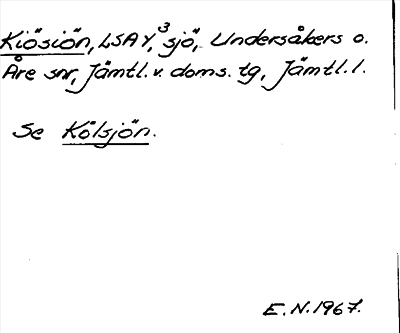 Kiösiön, LSA Y, ³sjö, Undersåkers o.
Åre snr, Jämtl. v. doms. tg, Jämtl. l.
Se Kölsjön.
E. N. 1967.